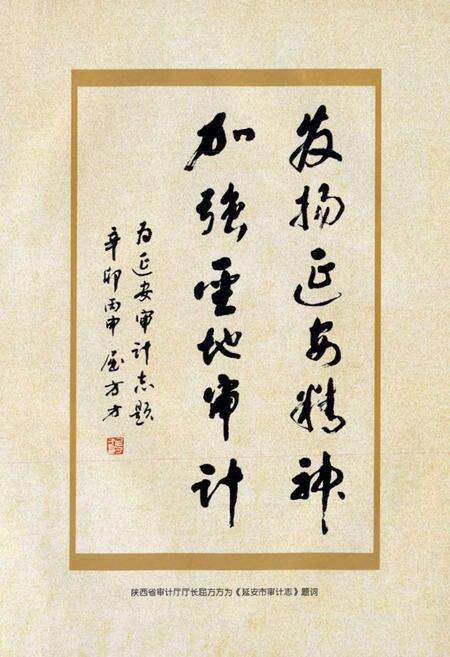 发扬延安精神
加强圣地审计
为延安审计志题
辛卯丙申 屈方方
陕西省审计厅厅长屈方方为《延安市审计志》题词